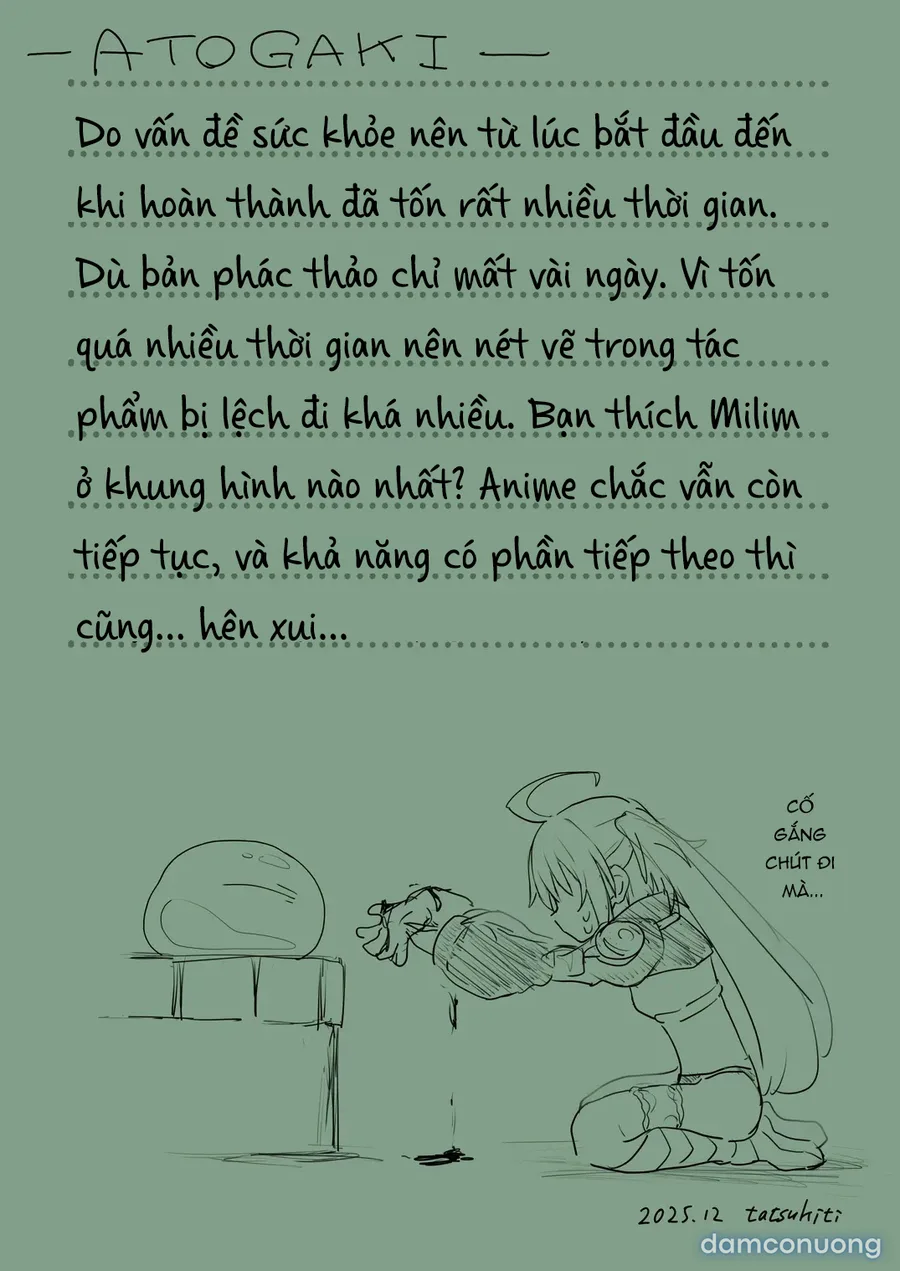 — ATOGAKI —
Do vấn đề sức khỏe nên từ lúc bắt đầu đến
khi hoàn thành đã tốn rất nhiều thời gian.
Dù bản phác thảo chỉ mất vài ngày. Vì tốn
quá nhiều thời gian nên nét vẽ trong tác
phẩm bị lệch đi khá nhiều. Bạn thích Milim
ở khung hình nào nhất? Anime chắc vẫn còn
tiếp tục, và khả năng có phần tiếp theo thì
cũng... hên xui...
CỐ
GẮNG
CHÚT ĐI
MÀ...
2025.12 tatsuhiti
damconuong